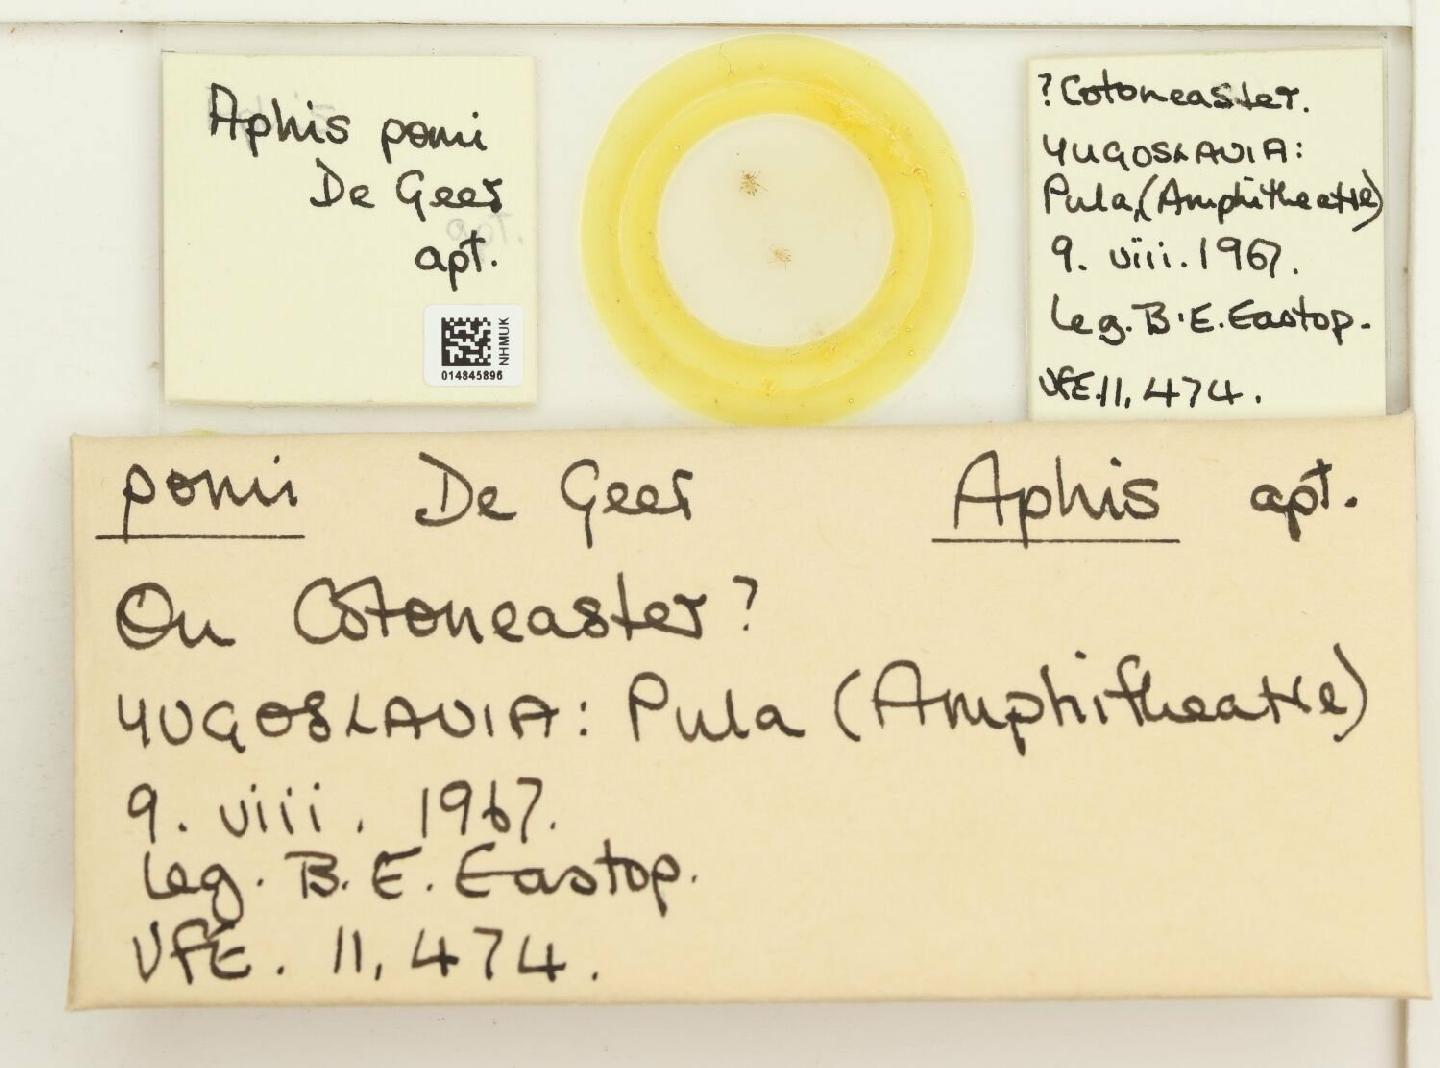 Aphis pomi
De Geer
apt.
NHMUK
014845896
?Cotoneaster.
YUGOSLAVIA:
Pula, (Amphitheatre)
9. viii. 1967.
Leg. B. E. Eastop.
VFE. 11, 474.
pomi De Geer Aphis apt.
On Cotoneaster?
YUGOSLAVIA: Pula (Amphitheatre)
9. viii. 1967.
Leg. B. E. Eastop.
VFE. 11, 474.